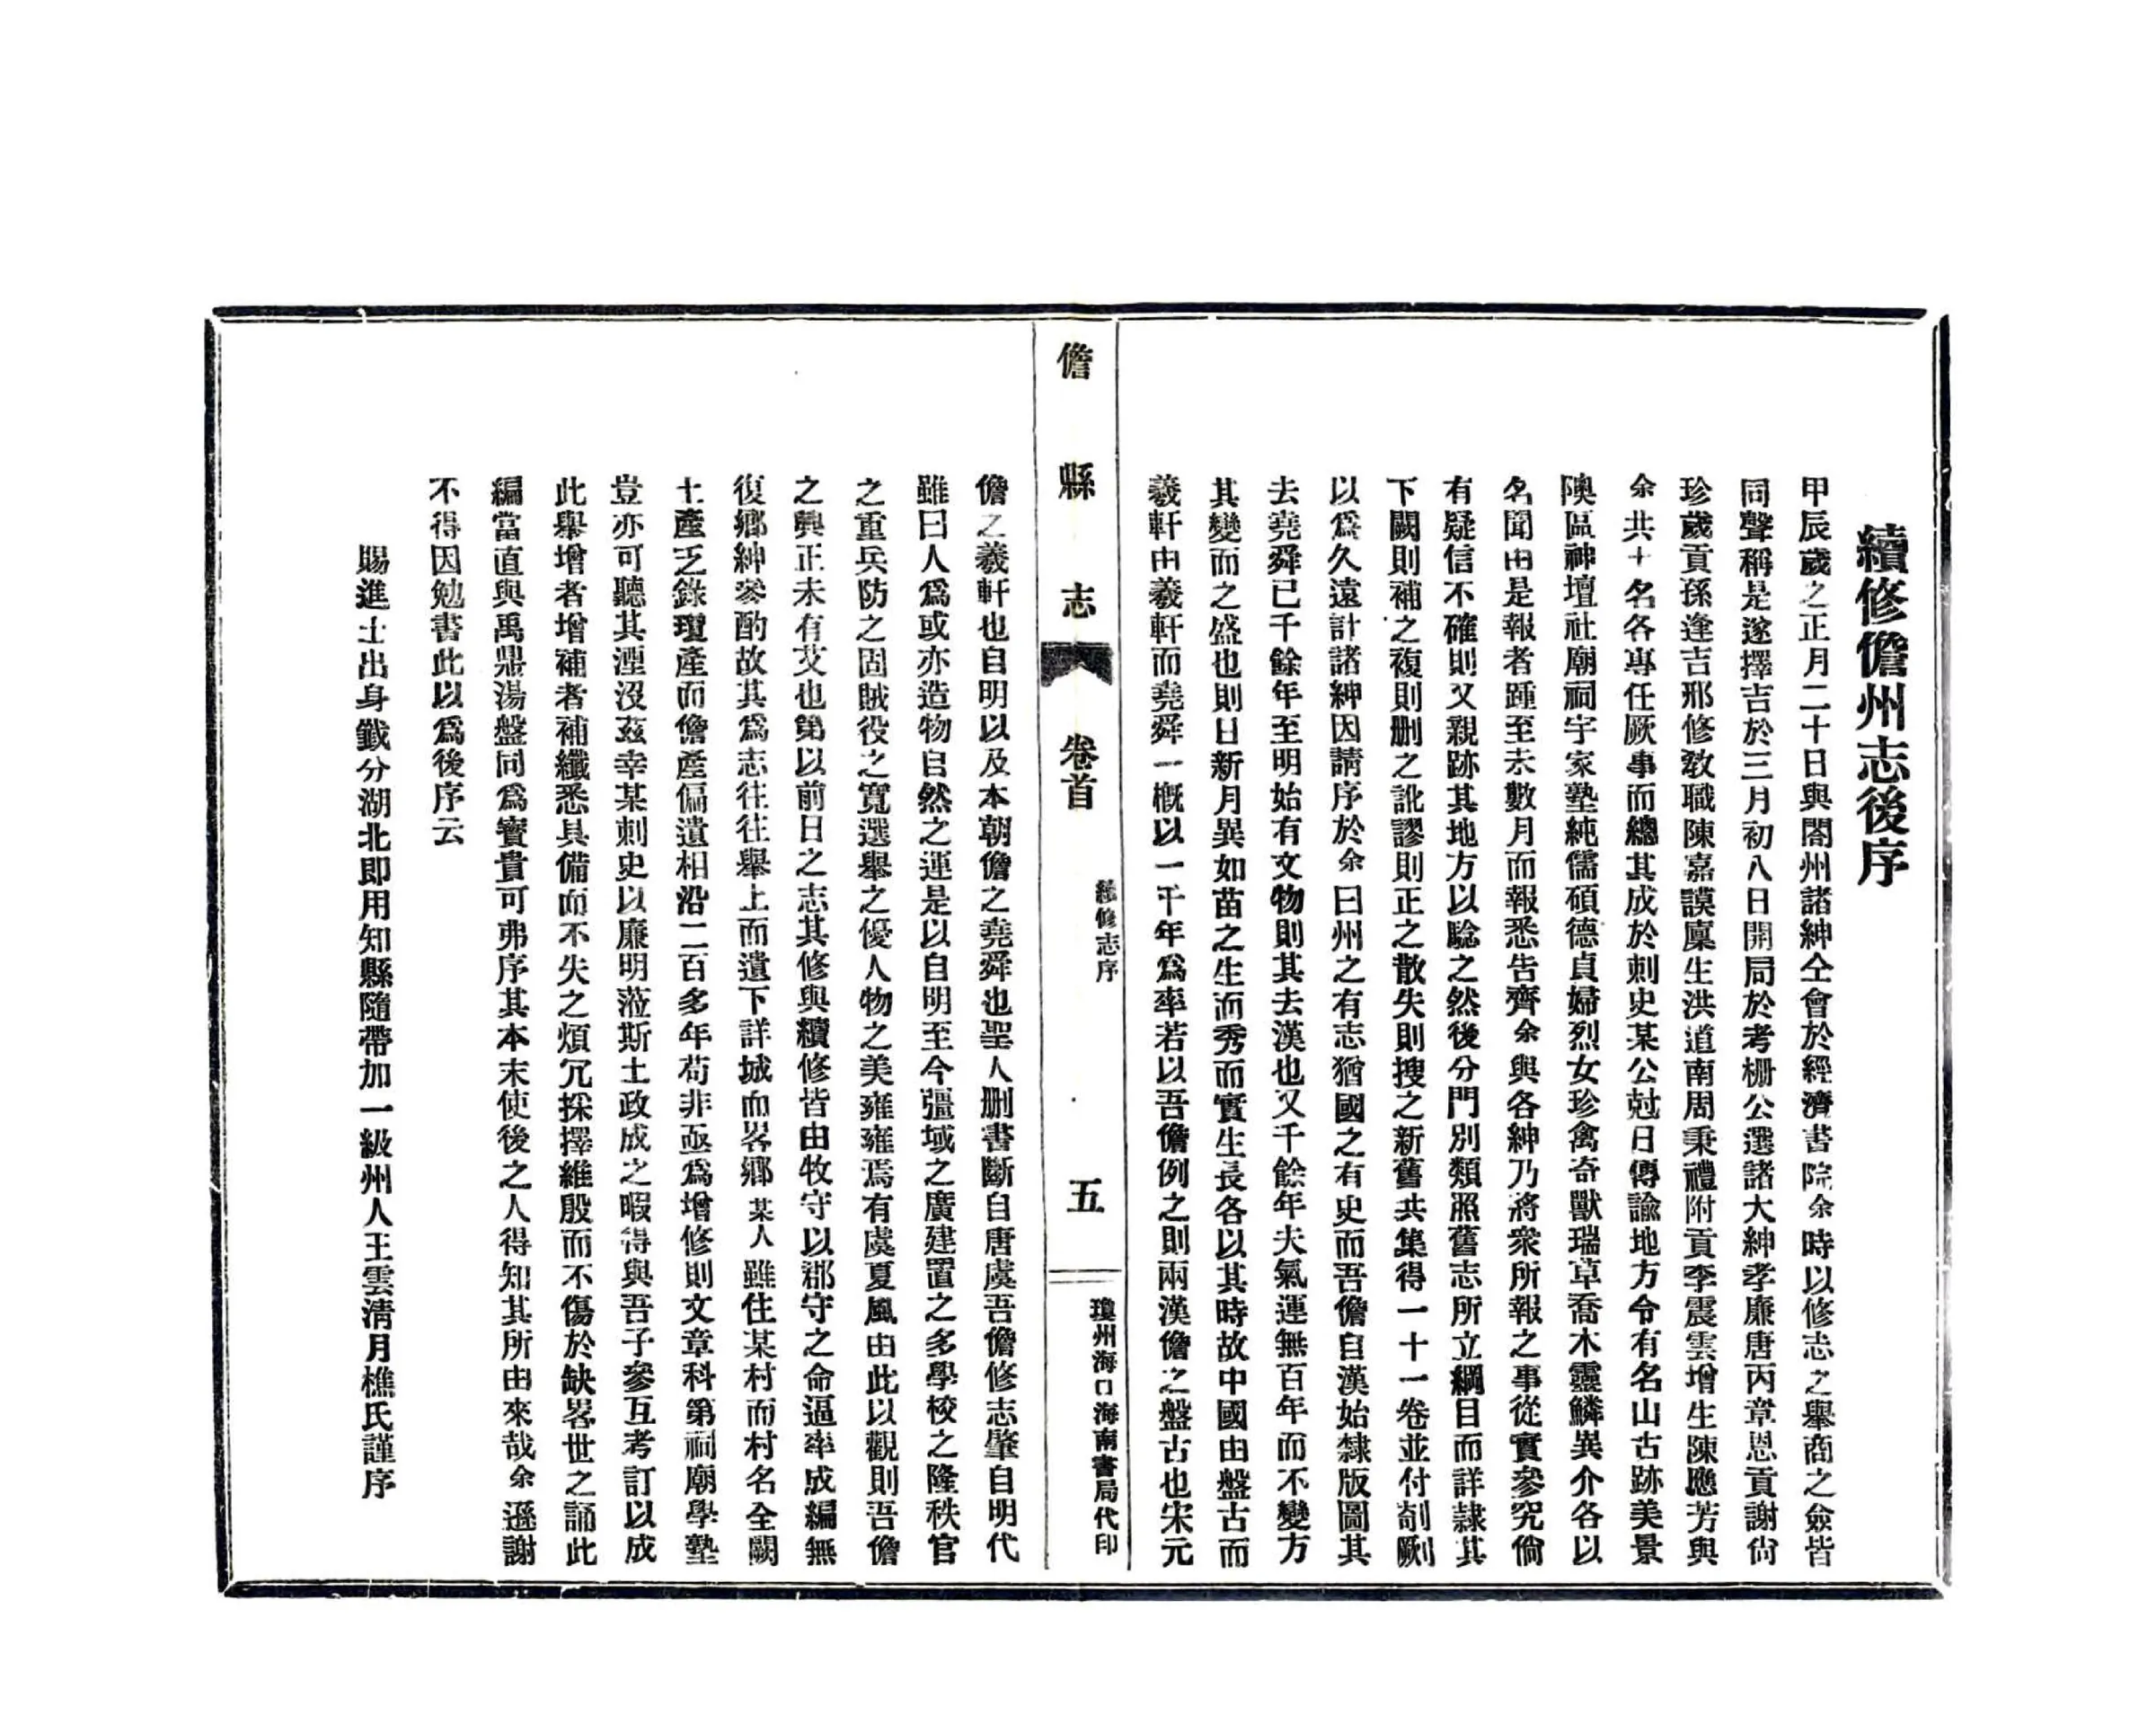 續修儋州志後序
甲辰歲之正月二十日與閤州諸紳仝會於經濟書院余時以修志之舉商之僉皆
同聲稱是遂擇吉於三月初八日開局於考棚公選諸大紳孝廉唐丙章恩貢謝尙
珍歲貢孫逢吉邢修敎職陳嘉謨廩生洪道南周秉禮附貢李震雲增生陳應芳與
余共十名各專任厥事而總其成於刺史某公尅日傳諭地方令有名山古跡美景
隩區神壇社廟祠宇家塾純儒碩德貞婦烈女珍禽奇獸瑞草喬木靈鱗異介各以
名聞由是報者踵至未數月而報悉告齊余與各紳乃將衆所報之事從實參究倘
有疑信不確則又親跡其地方以騐之然後分門別類照舊志所立綱目而詳隷其
下闕則補之複則刪之訛謬則正之散失則搜之新舊共集得一十一卷並付剞劂
以爲久遠計諸紳因請序於余曰州之有志猶國之有史而吾儋自漢始隸版圖其
去堯舜已千餘年至明始有文物則其去漢也又千餘年夫氣運無百年而不變方
其變而之盛也則日新月異如苗之生而秀而實生長各以其時故中國由盤古而
羲軒由羲軒而堯舜一概以一千年爲率若以吾儋例之則兩漢儋之盤古也宋元
儋縣志 卷首 續修志序 五 瓊州海口海南書局代印
儋之羲軒也自明以及本朝儋之堯舜也聖人刪書斷自唐虞吾儋修志肇自明代
雖曰人爲或亦造物自然之運是以自明至今彊域之廣建置之多學校之隆秩官
之重兵防之固賊役之寬選舉之優人物之美雍雍焉有虞夏風由此以觀則吾儋
之興正未有艾也第以前日之志其修與續修皆由牧守以郡守之命逼率成編無
復鄉紳參酌故其爲志往往舉上而遺下詳城而畧鄉某人雖住某村而村名全闕
土產乏錄瓊產而儋產偏遺相沿二百多年苟非亟爲增修則文章科第祠廟學塾
豈亦可聽其湮沒茲幸某刺史以廉明蒞斯土政成之暇得與吾子參互考訂以成
此舉增者增補者補纖悉具備而不失之煩冗採擇維殷而不傷於缺畧世之誦此
編當直與禹鼎湯盤同爲寶貴可弗序其本末使後之人得知其所由來哉余遜謝
不得因勉書此以爲後序云
賜進士出身籤分湖北即用知縣隨帶加一級州人王雲淸月樵氏謹序